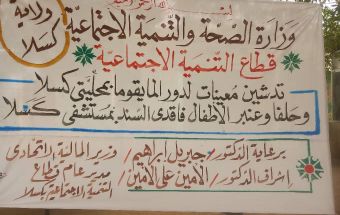 بسم الله الرحمن الرحيم
ولاية كسلا
وزارة الصحة والتنمية الاجتماعية
قطاع التنمية الاجتماعية
تدشين معينات لدور المايقوما بمحليتي كسلا
وحلفا وعنبر الاطفال فاقدي السند بمستشفى كسلا
برعاية الدكتور/ جبريل ابراهيم / وزير المالية الاتحادى
إشراف الدكتور/ الامين على الامين / مدير عام قطاع
التنمية الاجتماعية بكسلا